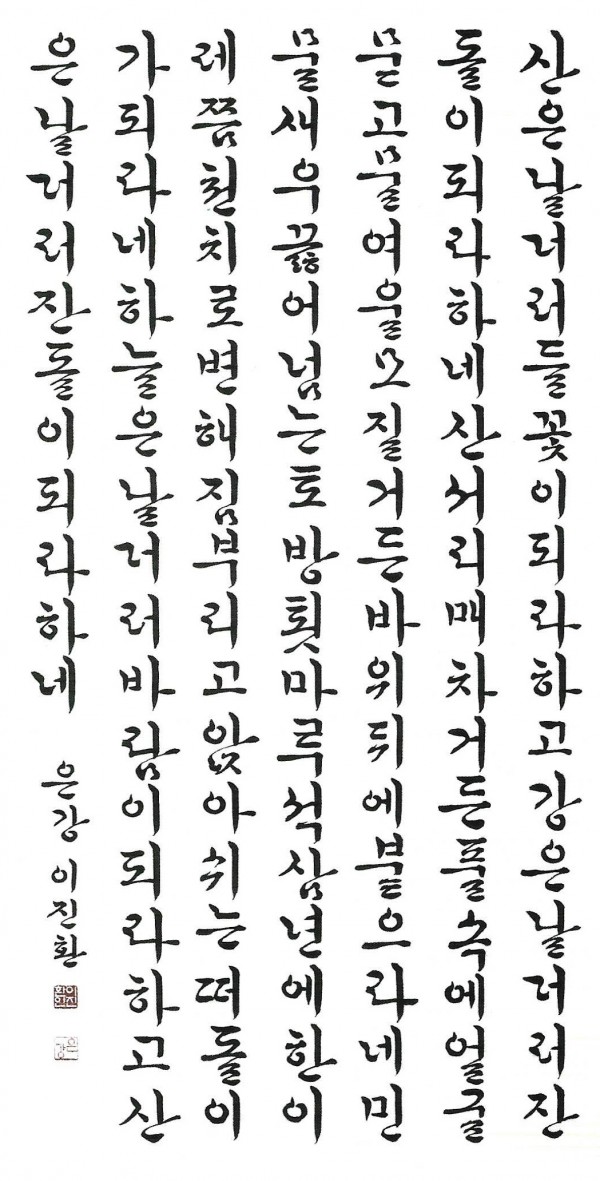 산은날더러들꽃이되라하고강은날더러잔
돌이되라하네산서리매차거든풀속에얼굴
묻고물여울모질거든바위뒤에붙으라네민
물새우끓어넘는토방툇마루석삼년에한이
레쯤천치로변해짐부리고앉아쉬는떠돌이
가되라네하늘은날더러바람이되라하고산
은날더러잔돌이되라하네
은강 이진환
은강